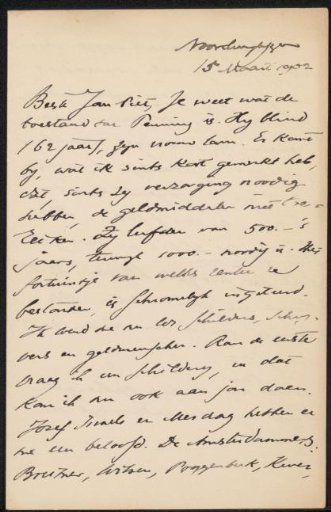 Noordwijk
15 Maart 1902
Beste Jan Piet, Je weet wat de
toestand van Penning is. Hij blind
(62 jaar), zijn vrouw lam. Er komt
bij, wat ik sints kort gemerkt heb,
dat, sints zij verzorging noodig
hebben, de geldmiddelen niet re-
iken. Zij leefden van 500.– 's
jaars, terwijl 1000.– noodig is. Het
fortuintje van welks rente ze
bestonden, is schromelijk
Ik wend me nu tot schilders, schrij-
vers en geldmenschen. Aan de eerste
vraag ik een schilderij, en dat
kan ik nu ook aan jou doen.
Jozef Israels en Mesdag hebben er
me een beloofd. De Amsterdammers:
Breitner, Witsen, Poggenbeek, Kever